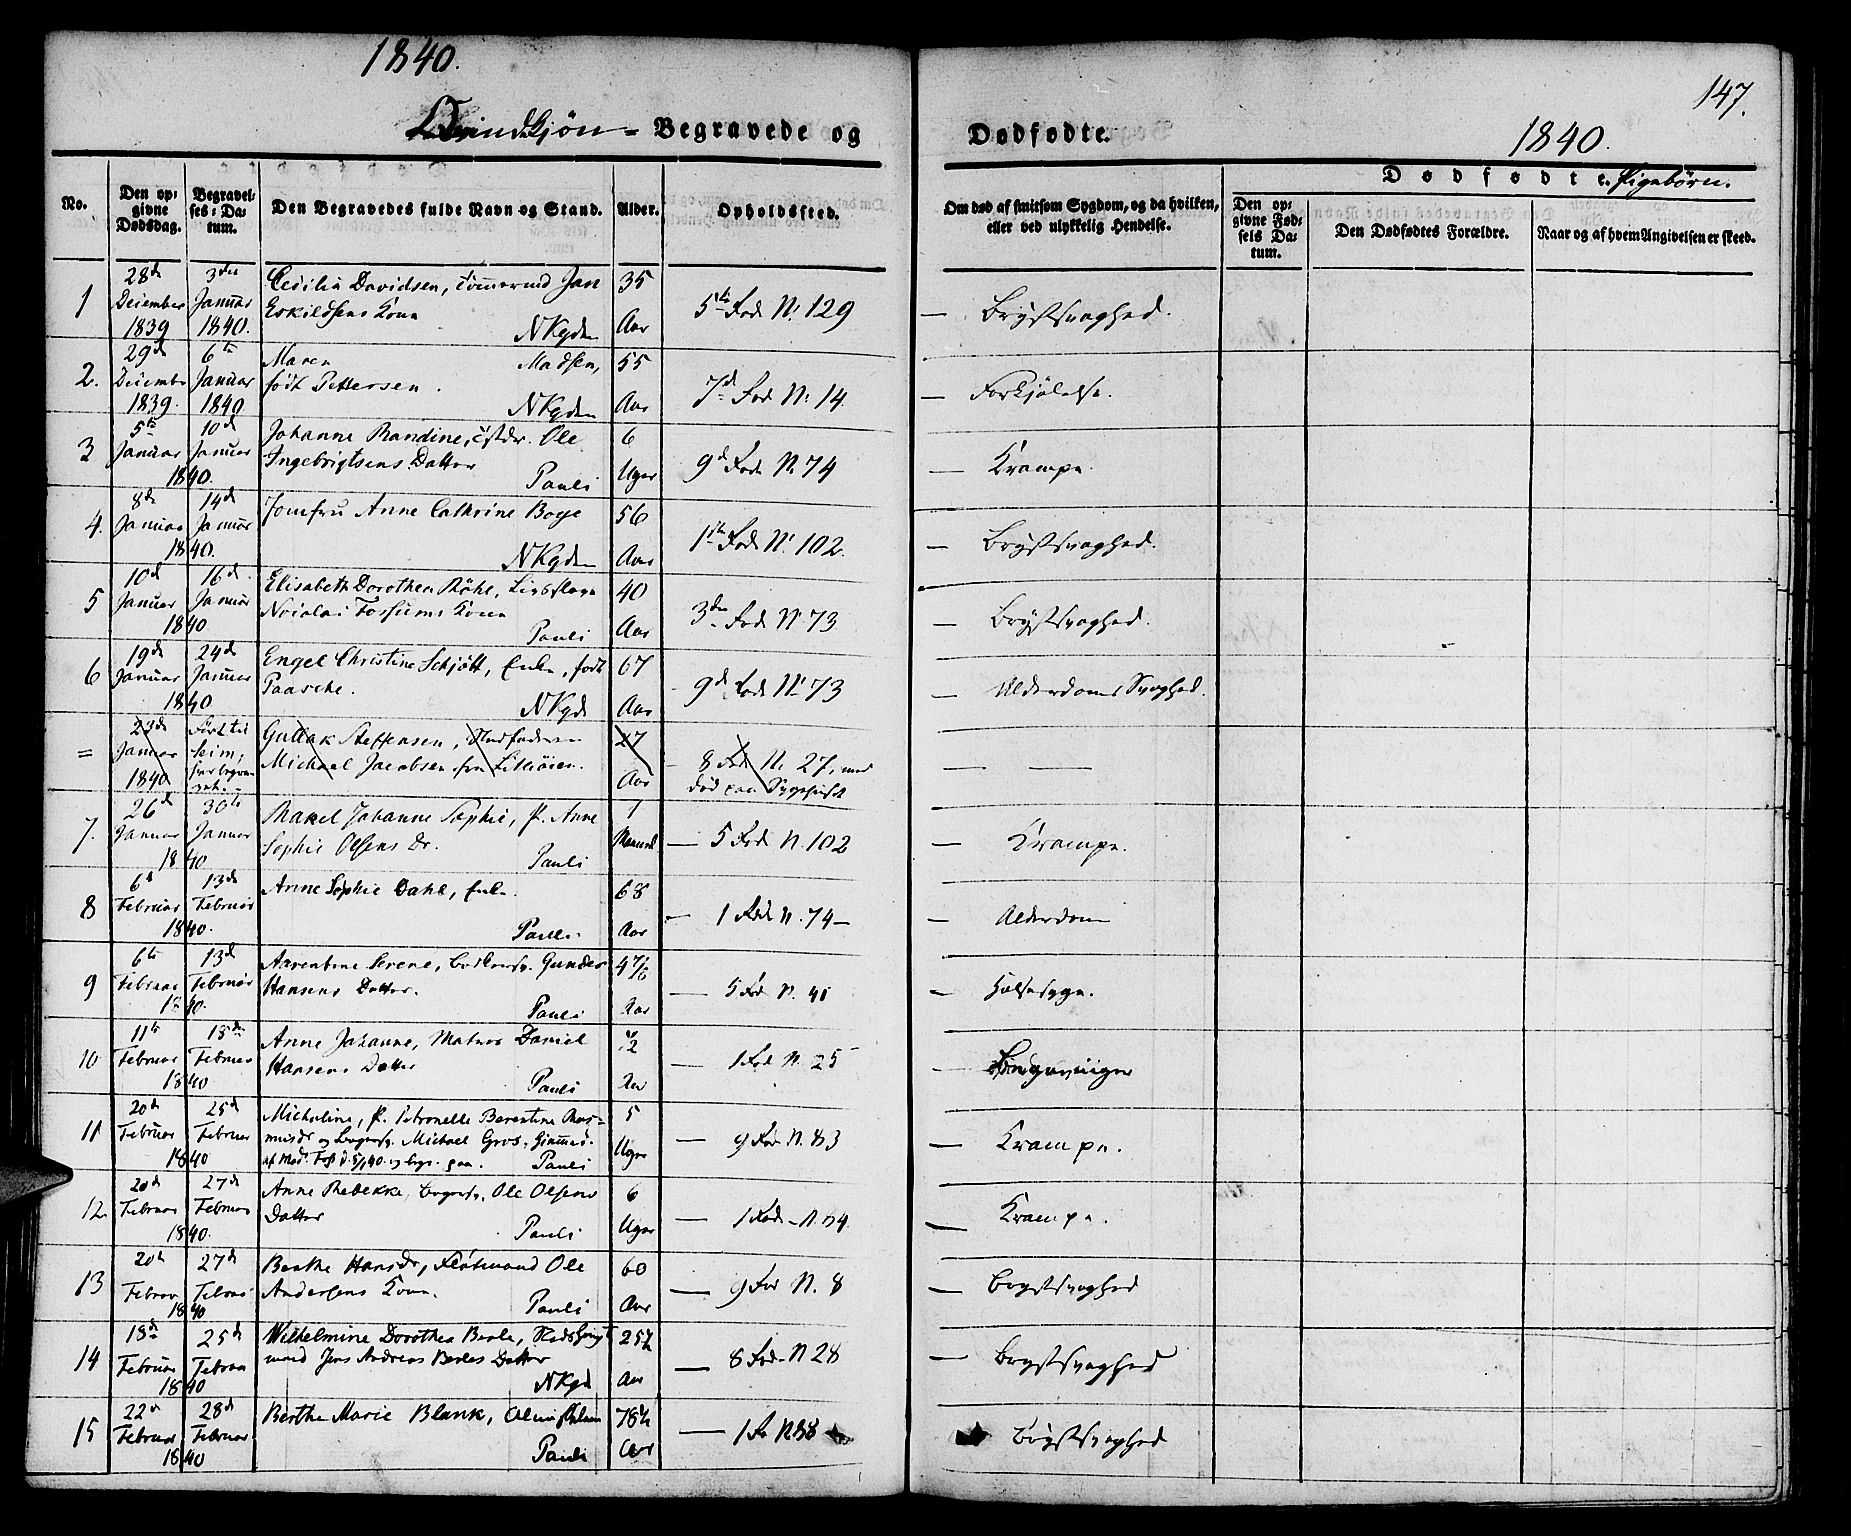 1840.
147.
Qvindekjøn - Begravede og Dødfødte. 1840.
Dødfødte Pigebörn.
No. | Den opgivne Dødsdag. | Begravelses-Datum. | Den Begravedes fulde Navn og Stand. | Alder. | Opholdssted. | Om død af smitsom Sygdom, og da hvilken, eller ved ulykkelig Hendelse. | Den opgivne Fødsels Datum. | Den Dødfødtes Forældre. | Naar og af hvem Angivelsen er skeed.
1 | 28de December 1839 | 3die Januar 1840. | Cecilia Davidsen, Tömmermd Jan Eskildsens Kone NKgden | 35 Aar | 5te Rode N: 129 | — Brÿstsvaghed.
2. | 29de Decembr 1839. | 6te Januar 1840 | Maren Madsen, født Pettersen. NKgden | 55 Aar | 7de Rode N: 14 | — Forkjölelse.
3 | 5te Januar 1840. | 10de Januar | Johanne Randine, Ole Ingebrigtsens Datter Pauli | 6 Uger | 9de Rode N 74 | — Krampe.
4. | 8de Januar 1840. | 14de Januar | Jomfru Anne Cathrine Boye NKgden | 56 Aar | 1ste Rode N: 102. | — Brÿstsvaghed.
5 | 10de Januar 1840 | 16de Januar | Elisabeth Dorothea Nicolai Fossums Kone Pauli | 40 Aar | 3die Rode N: 73 | — Brÿstsvaghed.
6 | 19de Januar 1840 | 24de Januar | Engel Christine Schjött, Enke, født Paasche. NKgd | 67 Aar | 9de Rode N: 73 | — Alderdoms Svaghed.
= | 23de Januar 1840 | Ført til | Steffensen, Michael Jacobsen fra | 27 Aar | 8 Rode N: 27, død paa | — —
7. | 26de Januar 1840 | 30te Januar | Johanne Sophie, P. Anne Sophie Olsens Dr. Pauli | 1 Maaned | — 5 Rode N. 102 | — Krampe.
8 | 6te Februar 1840. | 13de Februar | Anne Sophie Dahl, Enke. Pauli | 68 Aar | — 1 Rode N. 74 — | — Alderdom
9 | 6te Februar | 13de Februar | Aarentine Serene, Gunder Hansens Datter. Pauli | Aar | — 5 Rod N. 41 | — Halsesyge.
10 | 11te Februar 1840 | Februar | Anne Johanne, Matros Daniel Hansens Datter Pauli | 2 Aar | — 1 Rod N. 25 | —
11 | 20de Februar 1840 | 25de Februar | Micheline, P. Petronelle Berentine Michael Gros, Pauli | 5 Uger | — 9 Rod N. 83 | — Krampe.
12. | 20de Februar 1840. | 27de Februar | Anne Rebekke, Ole Olsens Datter Pauli | 6 Uger | — 1 Rode | — Krampe.
13 | 20de Februar 1840 | 27de Februar | Berthe Hansdr, Ole Andersens Kone. Pauli | 60 Aar | — 9 Rod N. 8 | — Brystsvaghed
14 | Februar 1840 | 25de Februar | Wilhelmine Dorothea Berle, Jens Andreas Berles Datter NKgd | 25½ Aar | — 8 Rode N 28 | — Brystsvaghed
15 | 22de Februar 1840 | 28de Februar | Berthe Marie Blank, Pauli | 78½ Aar | — 1 Ro | Brÿstsvaghed